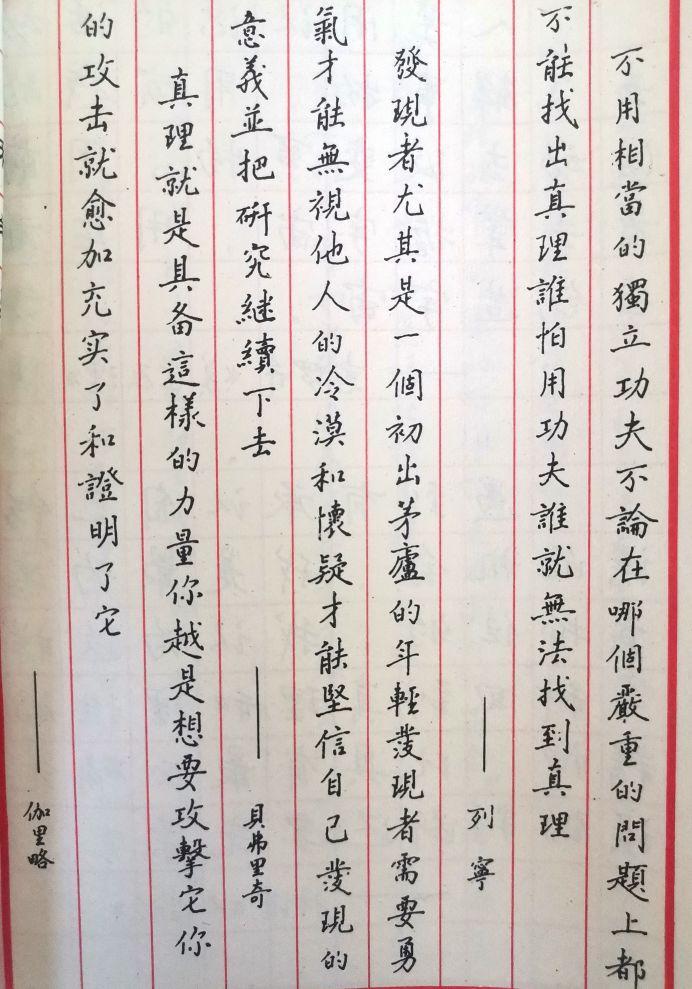 不用相當的獨立功夫不論在哪個嚴重的問題上都
不能找出真理誰怕用功夫誰就無法找到真理
——列寧
發現者尤其是一個初出茅廬的年輕發現者需要勇
氣才能無視他人的冷漠和懷疑才能堅信自己發現的
意義並把研究継續下去
——貝弗里奇
真理就是具备這樣的力量你越是想要攻擊它你
的攻击就愈加充实了和證明了它
——伽里略